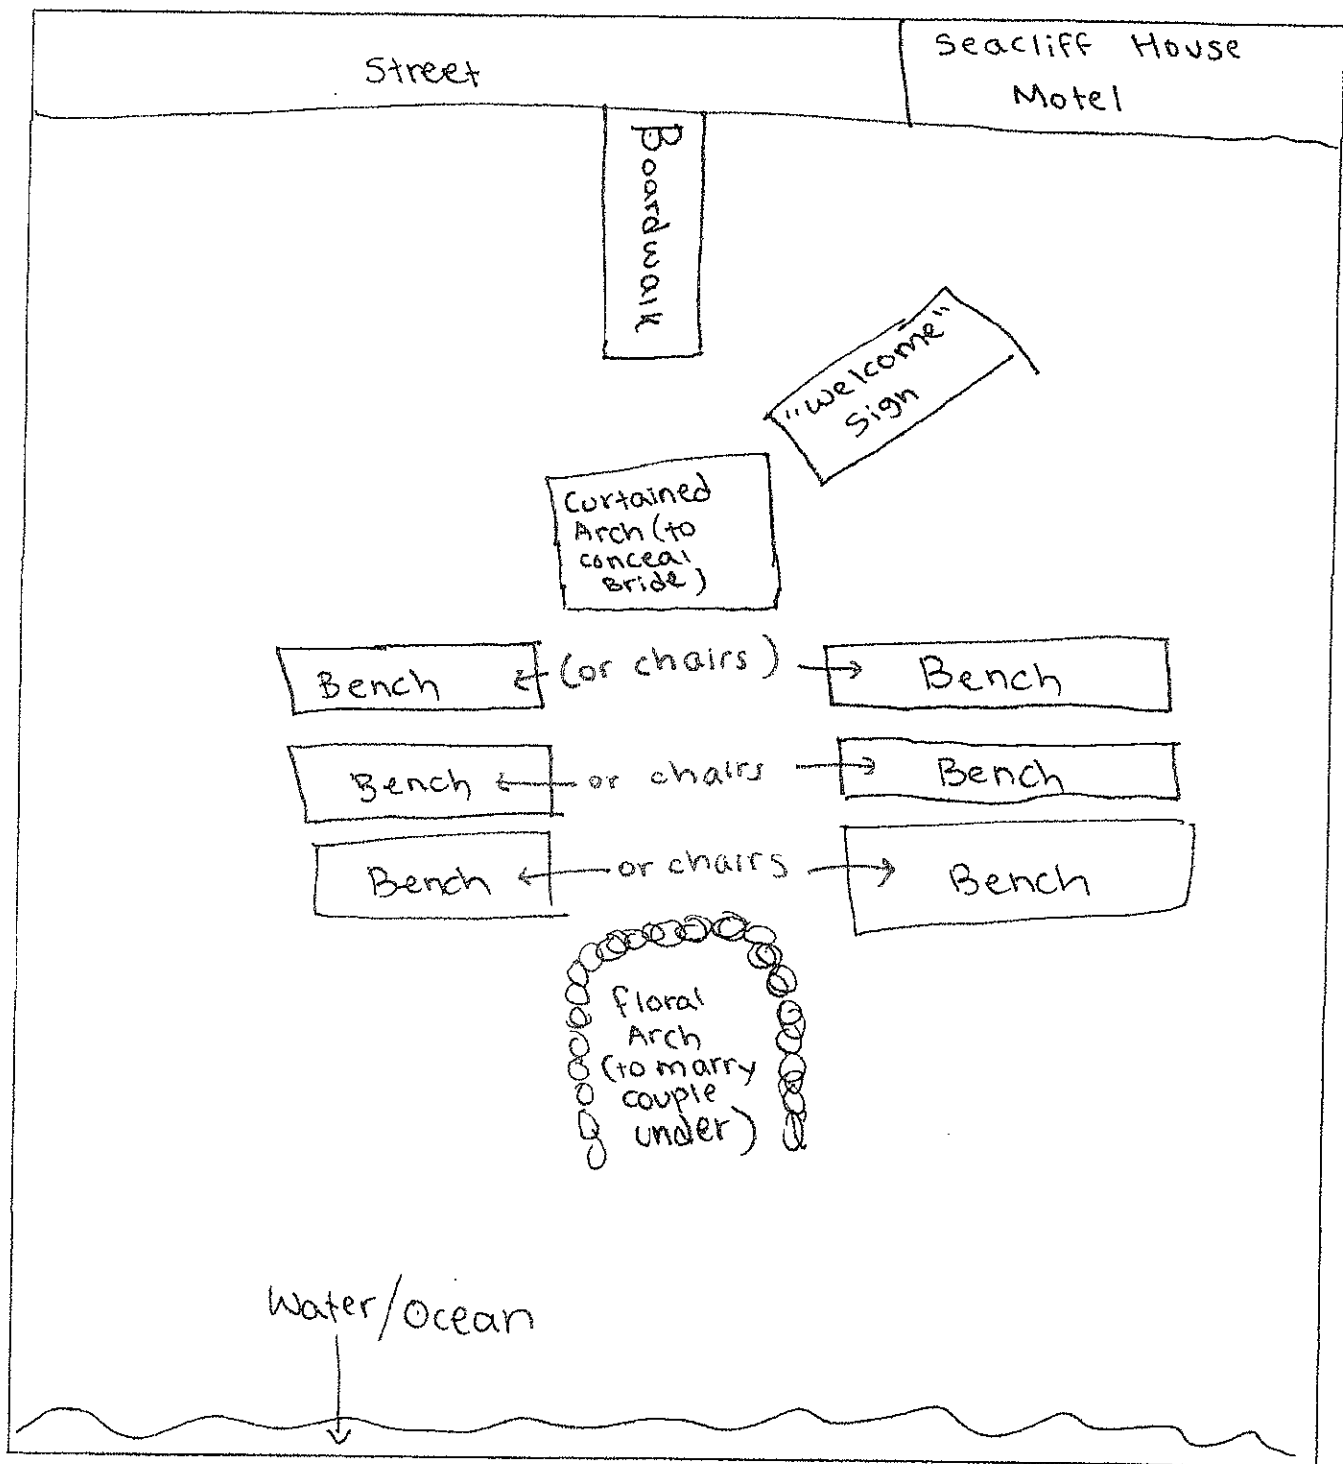 Street
Seacliff House
Motel
Boardwalk
"Welcome"
Sign
Curtained
Arch (to
conceal
Bride)
Bench ← (or chairs) → Bench
Bench ← or chairs → Bench
Bench ← or chairs → Bench
floral
Arch
(to marry
couple
under)
Water/Ocean